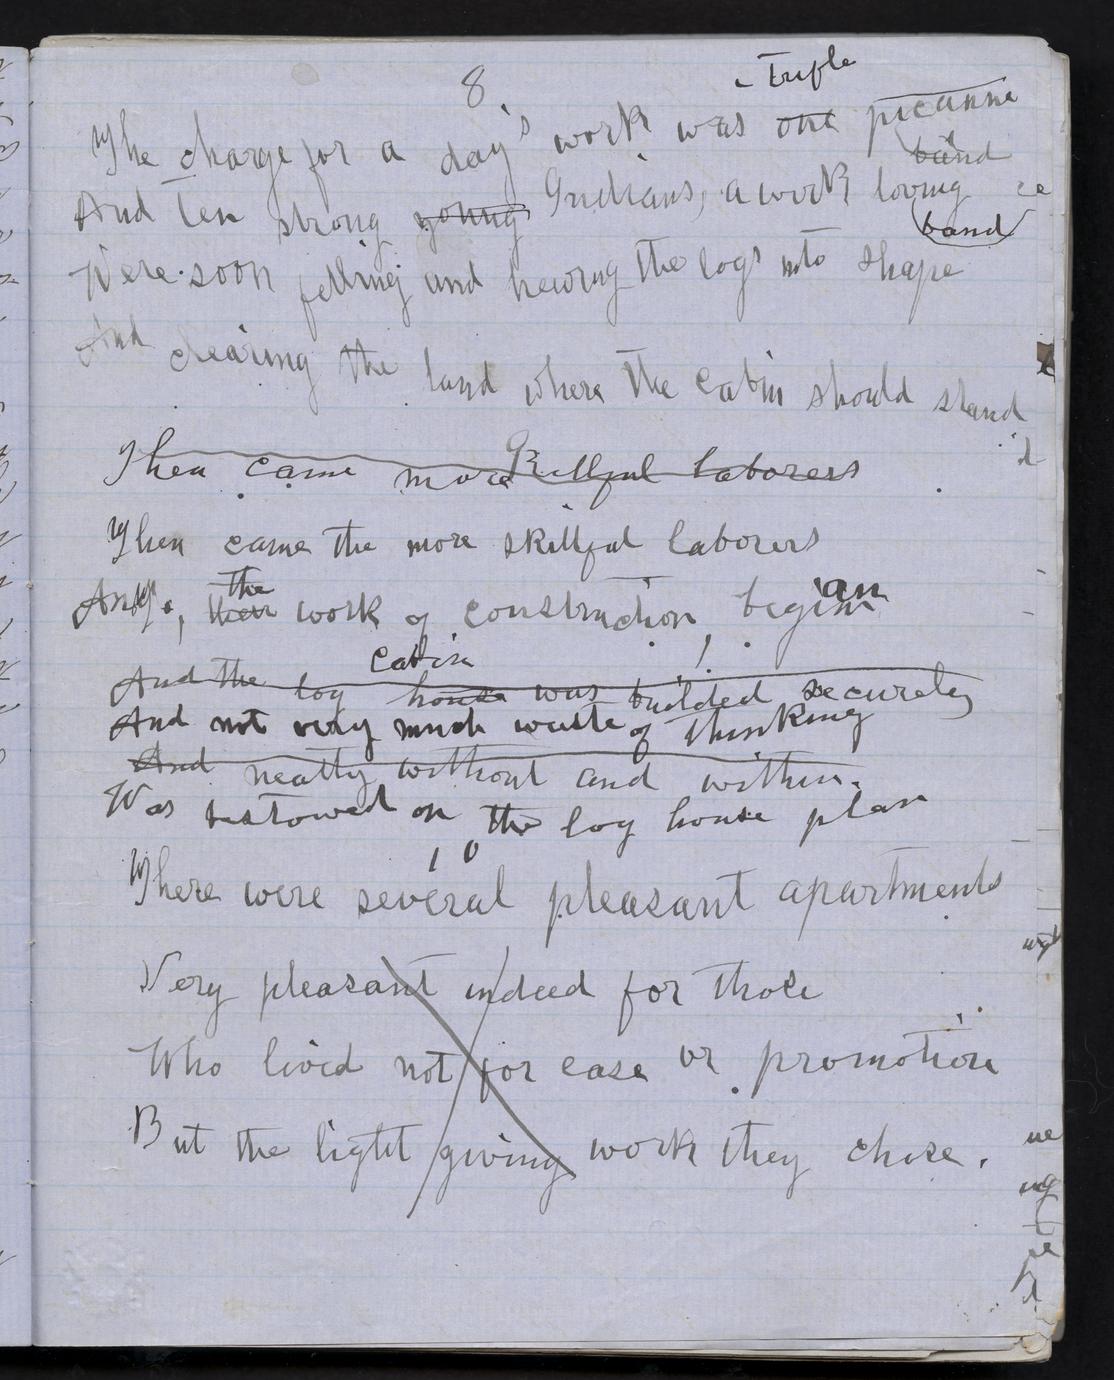 8
triple
The charge for a day's work was one picanne
band
And Ten strong young Indians, a work loving
band
Were soon felling and hewing the logs into shape
And clearing the land where the cabin should stand
Then came more skillful laborers
Then came the more skillful laborers
the an
their work of construction, begin
cabin
And the log house was builded securely
And not very much waste of thinking
And neatly without and within.
Was bestowed on the log house plan
10
There were several pleasant apartments
Very pleasant indeed for those
Who lived not for ease or promotion
But the light giving work they chose.